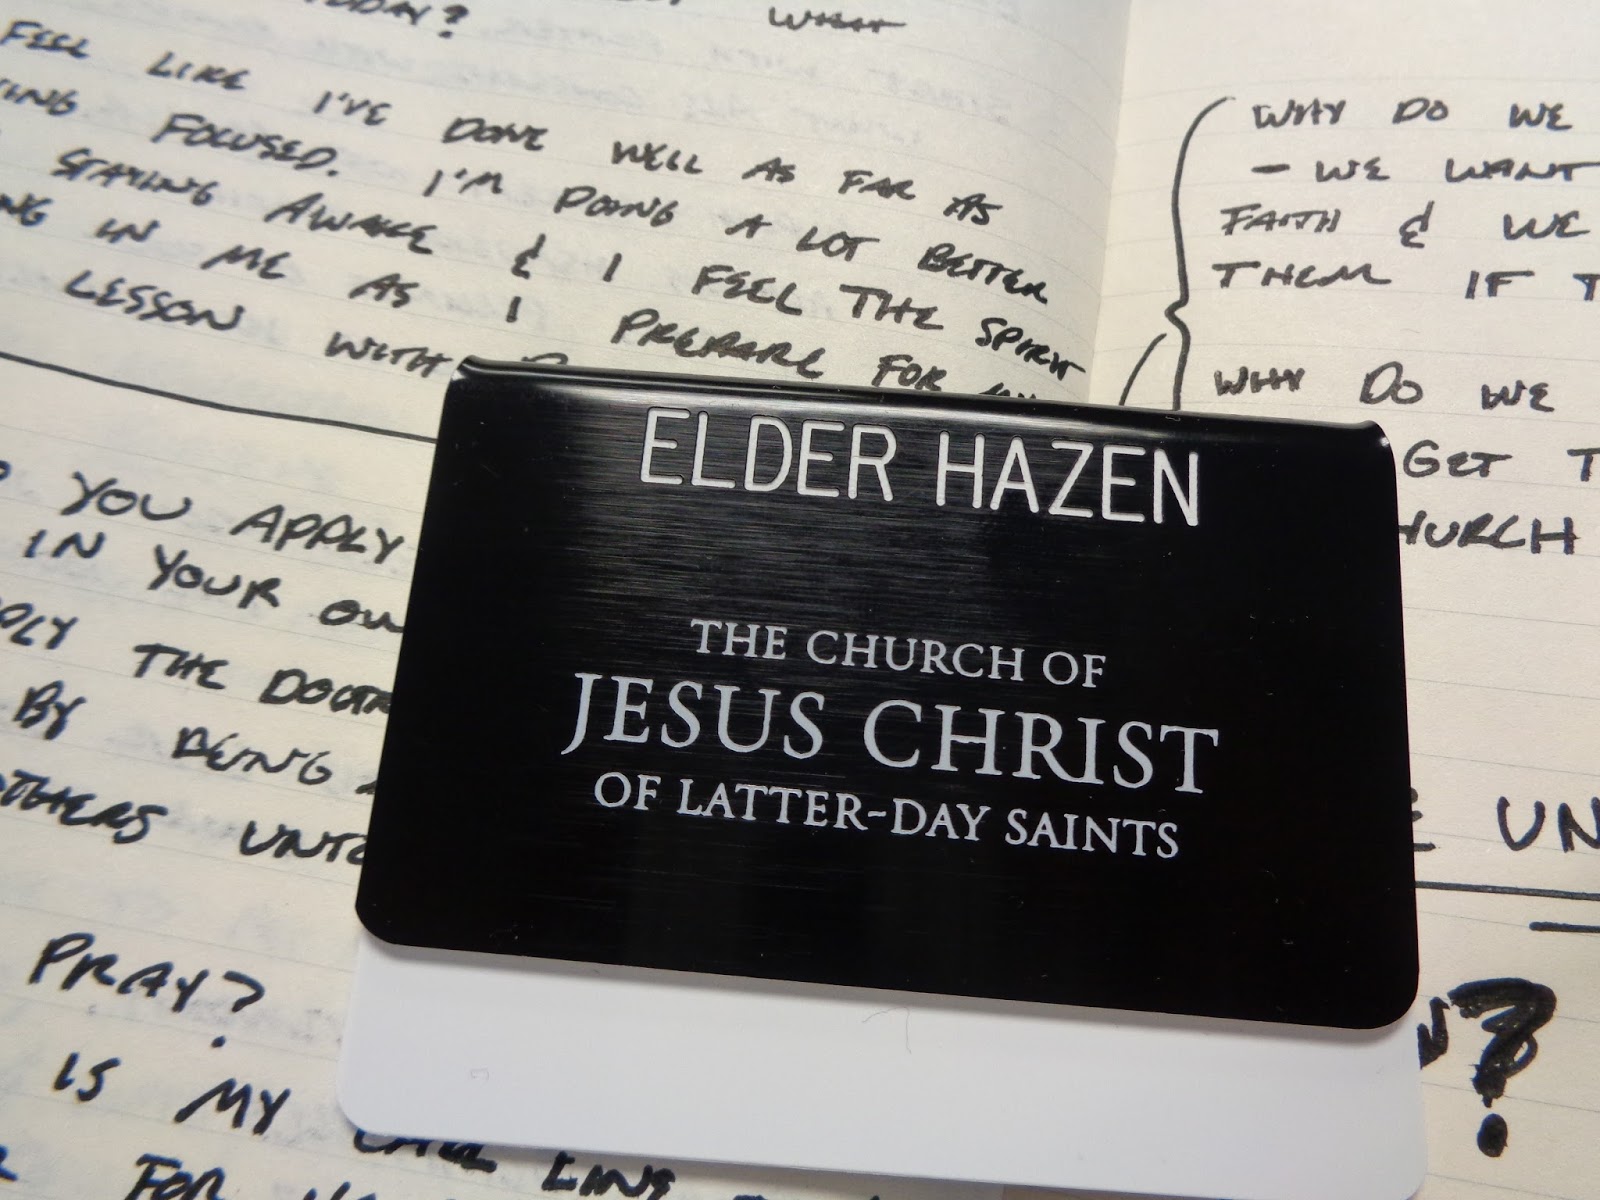 TODAY?
WHAT
FEEL LIKE I'VE DONE WELL AS FAR AS
FOCUSED. I'M DOING A LOT BETTER
STAYING AWAKE & I FEEL THE SPIRIT
IN ME AS I PREPARE FOR
LESSON WITH
YOU APPLY
IN YOUR
THE
BY BEING
OTHERS UNTO
PRAY?
IS MY
FOR
WHY DO WE
- WE WANT
FAITH & WE
THEM IF
WHY DO WE
GET
CHURCH
UN
?
ELDER HAZEN
THE CHURCH OF
JESUS CHRIST
OF LATTER-DAY SAINTS